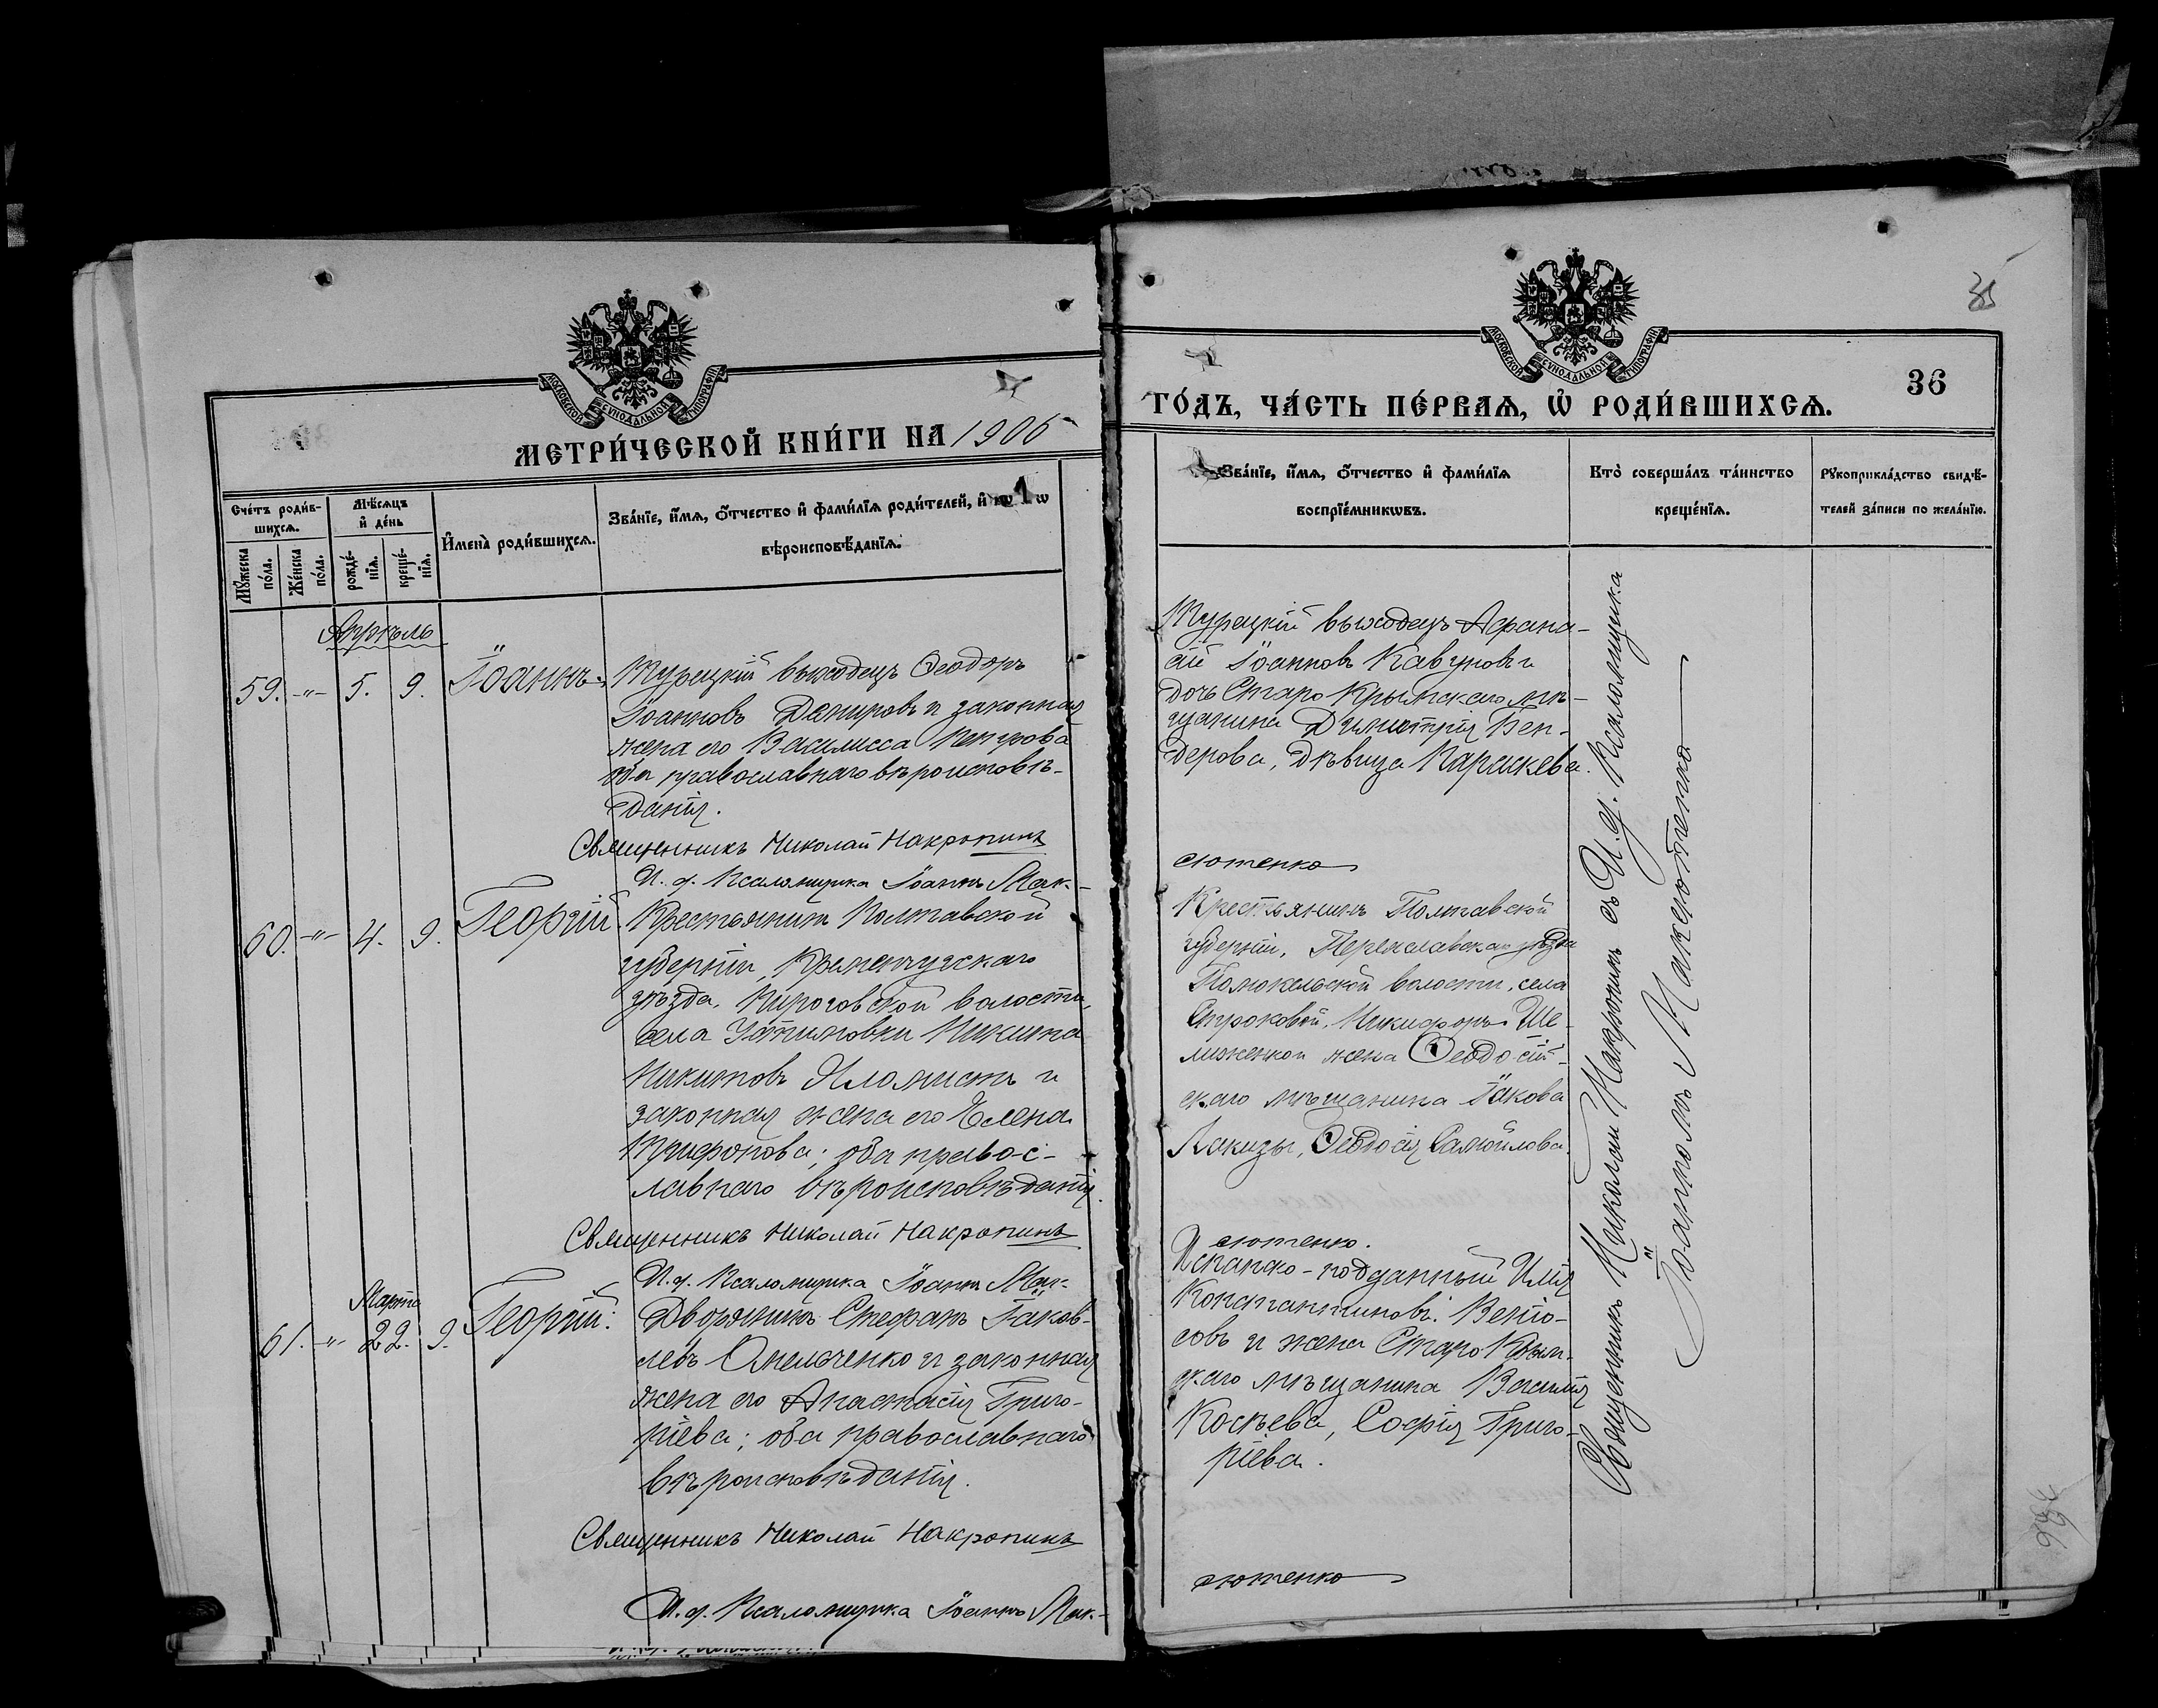 МОСКОВСКОЙ СѴНОДАЛЬНОЙ ТИПОГРАФІИ
МЕТРИ́ЧЕСКОЙ КНИ́ГИ НА 1906
Сче́тъ роди́в-
шихся.
Мѣ́сяцъ
и҆ де́нь
Мꙋ́жеска
по́ла.
Же́нска
по́ла.
рожде́-
нїѧ.
креще́-
нїѧ.
И҆мена̀ роди́вшихсѧ.
Зва́нїе, и҆́мѧ, ѻ҆́тчество и҆ фами́лїѧ роди́телей, и҆
вѣроисповѣ́данїѧ.
Апрѣль
59. -"- 5. 9. Іоаннъ.
Турецкій выходецъ Ѳеодоръ
Іоанновъ и законная
жена его Василисса Петрова
оба православнаго вѣроисповѣ-
данія.
Священникъ Николай Накропинъ
И. д. Псаломщика Іоаннъ Мак-
60. -"- 4. 9. Георгій.
Крестьянинъ Полтавской
губерніи, Кременчугскаго
уѣзда, Пироговской волости,
села Никита
Никитовъ и
законная жена его Елена
Трифонова; оба правос-
лавнаго вѣроисповѣданія.
Священникъ Николай Накропинъ
И. д. Псаломщика Іоаннъ Мак-
Марта
61. -"- 22. 9. Георгій.
Дворянинъ Стефанъ Іаков-
левъ Омельченко и законная
жена его Анастасія Григо-
ріева; оба православнаго
вѣроисповѣданія.
Священникъ Николай Накропинъ
И. д. Псаломщика Іоаннъ Мак-
35
36
МОСКОВСКОЙ СѴНОДАЛЬНОЙ ТИПОГРАФІИ
ГО́ДЪ, ЧА́СТЬ ПЕ́РВАѦ, Ѡ҆ РОДИ́ВШИХСѦ.
Зва́нїе, и҆́мѧ, ѻ҆́тчество и҆ фами́лїѧ
воспрїе́мникѡвъ.
Кто̀ соверша́лъ та́инство
креще́нїѧ.
Рꙋкоприкла́дство свидѣ́-
телей за́писи по жела́нїю.
Турецкій выходецъ Афана-
сій Іоанновъ Кавуновъ и
дочь Старо Крымскаго мѣ-
щанина Димитрія Бен-
дерова, дѣвица Параскева.
сютенко
Крестьянинъ Полтавской
губерніи, Переяславскаго уѣзда
волости, села
Строковой, Никифоръ Ше-
жена Ѳеодосій-
скаго мѣщанина Іакова
Лакизы, Ѳеодосія Самойлова.
сютенко.
Испанско-подданный Илія
Константиновъ
и жена Старо Крым-
скаго мѣщанина Василія
Софія Григо-
ріева.
сютенко
Священникъ Николай Накропинъ съ И. д. Псаломщика
Іоанномъ Максютенко